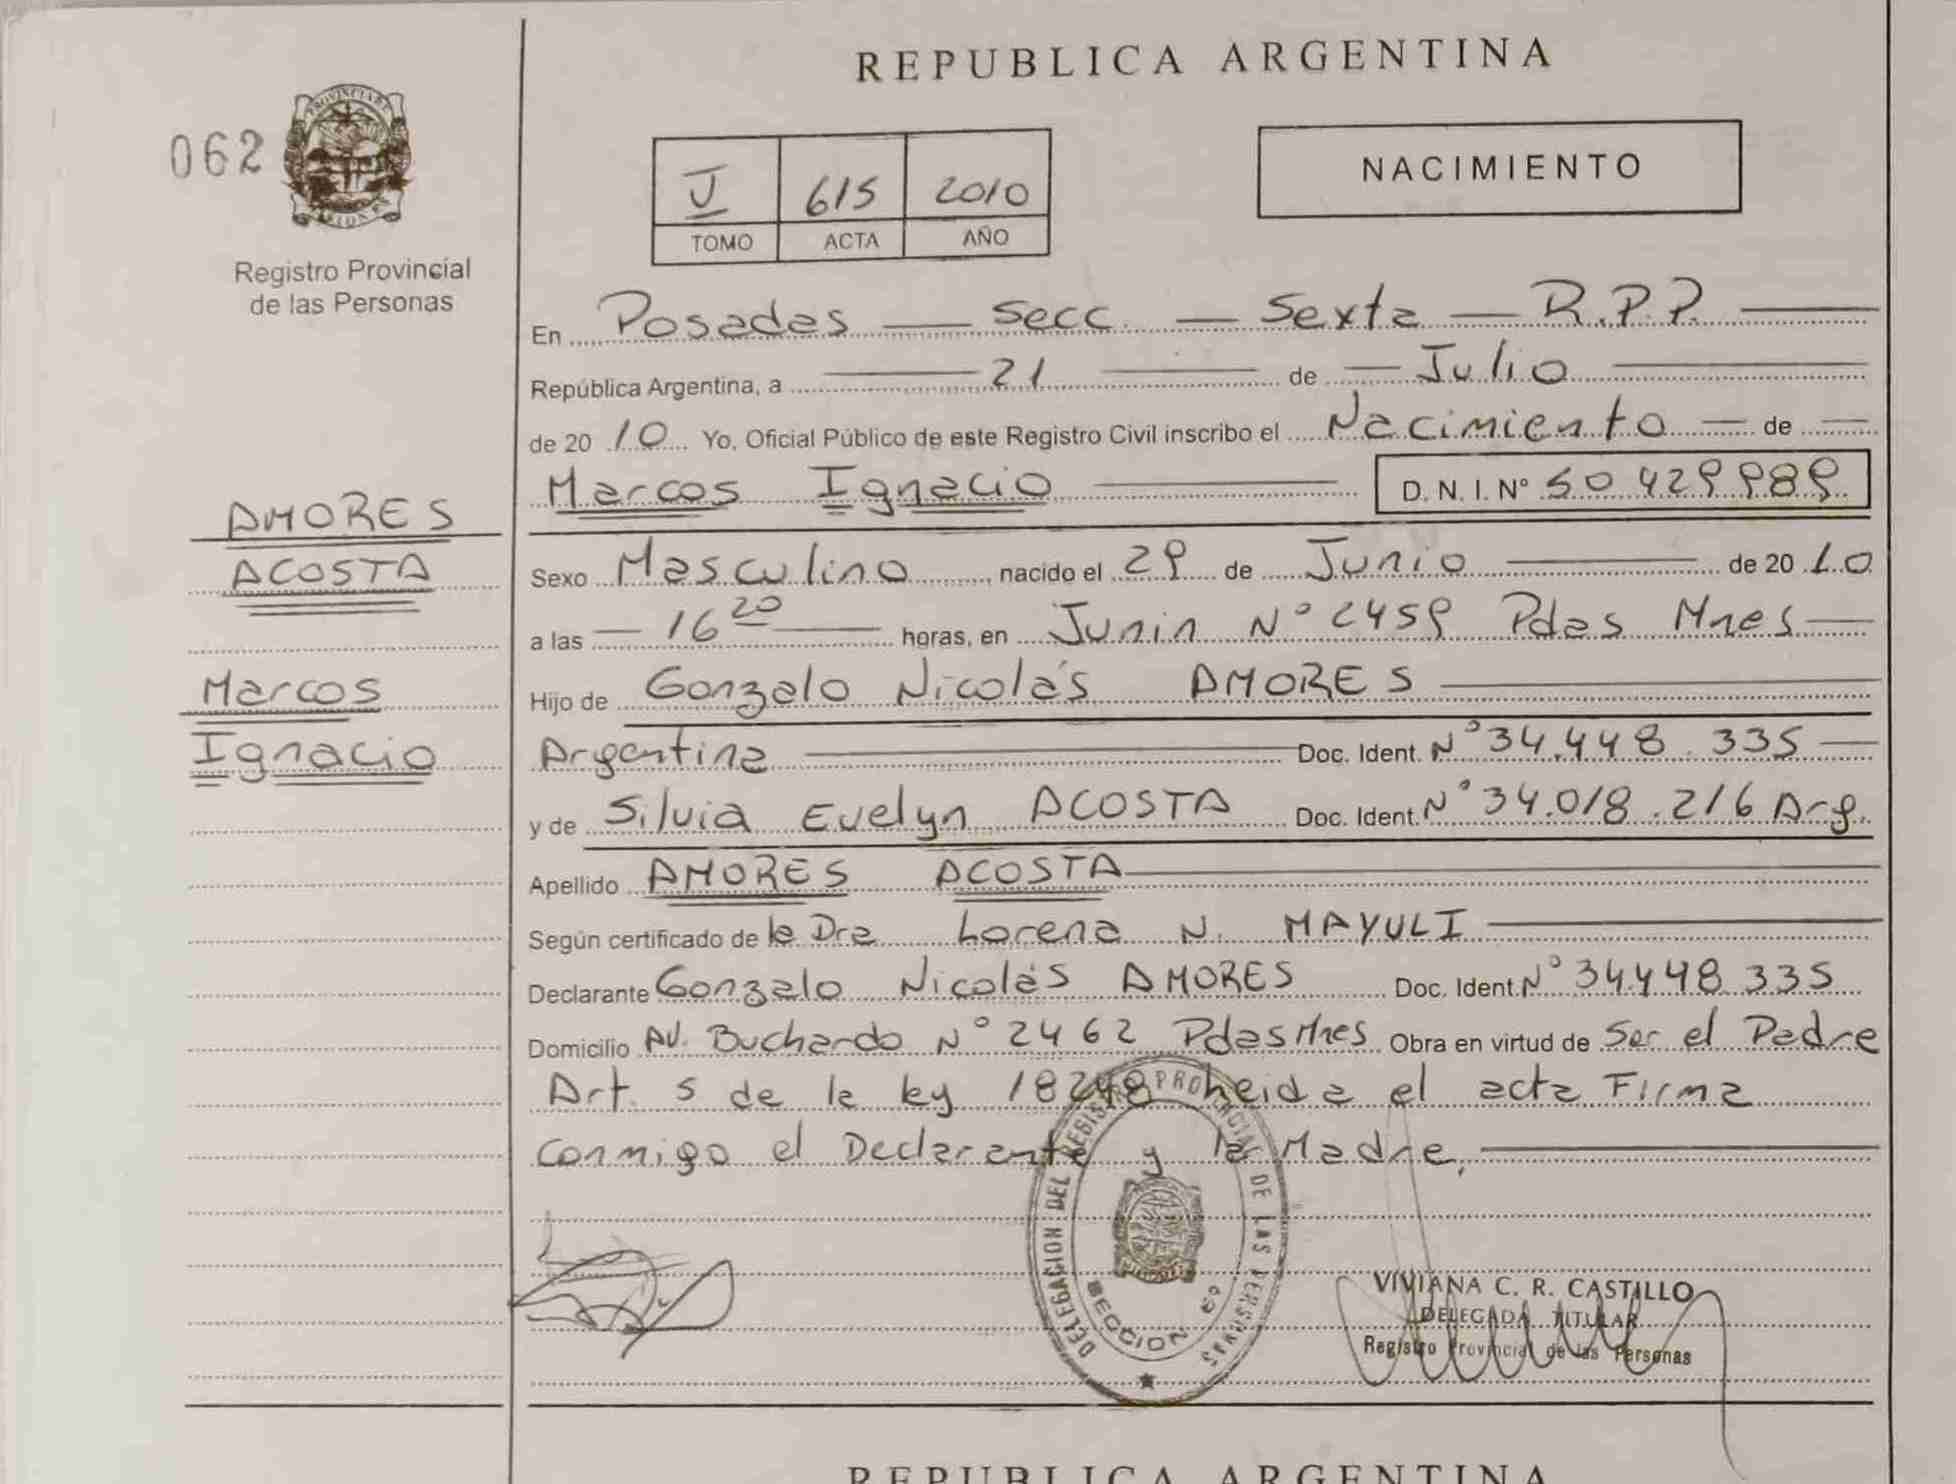 REPUBLICA ARGENTINA
062
PROVINCIA DE MISIONES
Registro Provincial
de las Personas
J 615 2010
TOMO ACTA AÑO
NACIMIENTO
En Posadas — Secc. — Sexta — R.P.P. —
República Argentina, a — 21 — de — Julio —
de 20 10 Yo, Oficial Público de este Registro Civil inscribo el Nacimiento — de —
Marcos Ignacio — D. N. I. Nº 50 429 989
AMORES
ACOSTA
Marcos
Ignacio
Sexo Masculino, nacido el 29 de Junio — de 20 10
a las — 16 20 — horas, en Junin Nº 2459 Pdas Mnes —
Hijo de Gonzalo Nicolás AMORES —
Argentina — Doc. Ident. Nº 34.448.335 —
y de Silvia Evelyn ACOSTA Doc. Ident. Nº 34.018.216 Arg.
Apellido AMORES ACOSTA —
Según certificado de la Dra Lorena N. MAYULI —
Declarante Gonzalo Nicolás AMORES Doc. Ident Nº 34.448.335
Domicilio AV. Buchardo Nº 2462 Pdas Mnes Obra en virtud de Ser el Padre
Art. 5 de la ley 18248 heida el acta Firma
conmigo el Declarante y la Madre, —
DELEGACION DEL REGISTRO PROVINCIAL DE LAS PERSONAS
SECCION 6º
VIVIANA C. R. CASTILLO
DELEGADA TITULAR
Registro Provincial de las Personas
REPUBLICA ARGENTINA